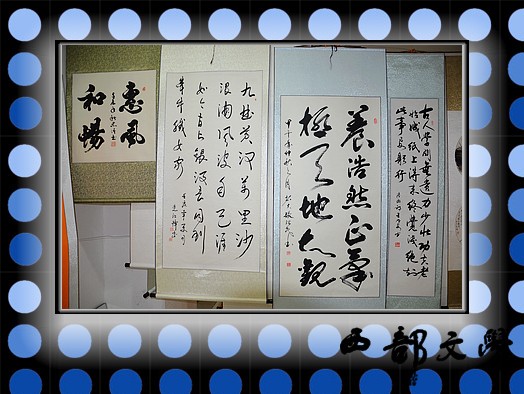 惠風
和暢
九曲黄河萬里沙
浪淘風波自天涯
如今直上銀河去同到
牽牛織女家
養浩然正氣
極天地大觀
古人學問無遺力少壯功夫老
始成紙上得來終覺淺絕知
此事要躬行
西部文學